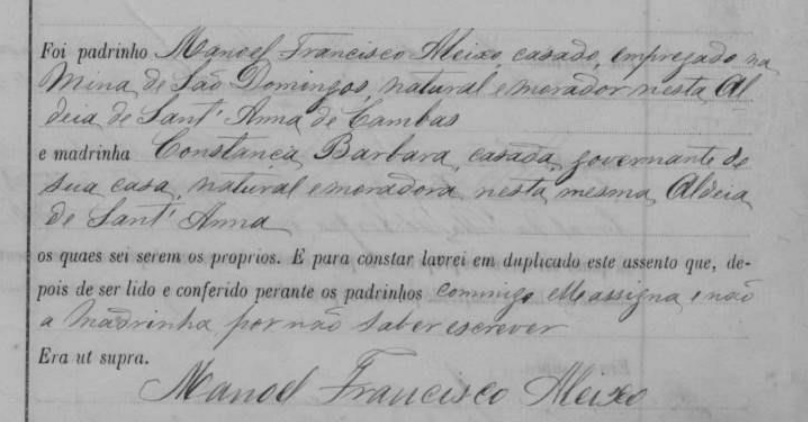 Foi padrinho Manoel Francisco Aleixo, casado, empregado na
Mina de São Domingos, natural e morador nesta Al-
deia de Sant' Anna de Cambas
e madrinha Constancia Barbara, casada, governante de
sua casa, natural e moradora nesta mesma Aldeia
de Sant' Anna
os quaes sei serem os proprios. E para constar lavrei em duplicado este assento que, de-
pois de ser lido e conferido perante os padrinhos commigo elle assigna e não
a madrinha por não saber escrever
Era ut supra.
Manoel Francisco Aleixo